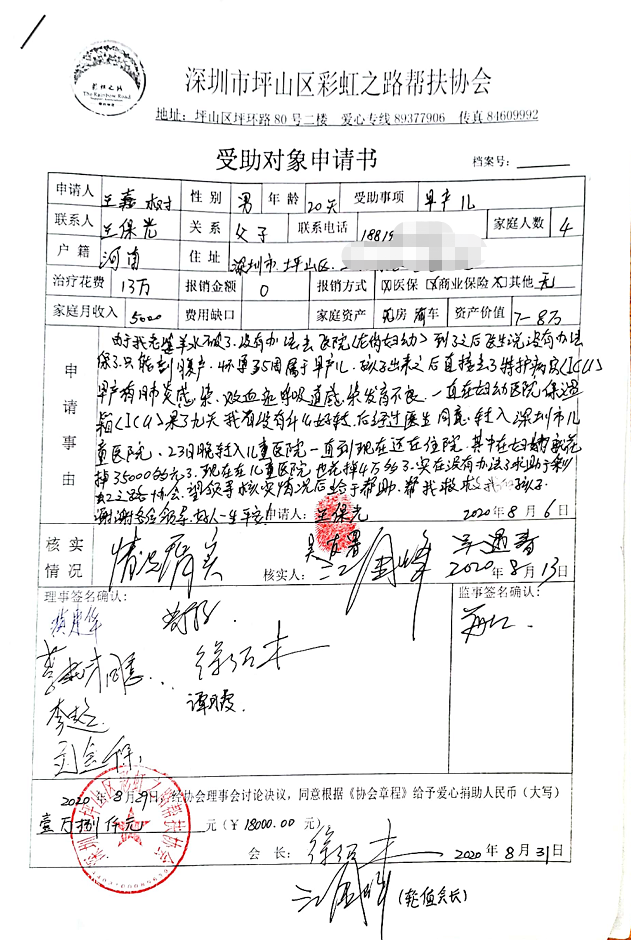 The Rainbow Road
深圳市坪山区彩虹之路帮扶协会
地址：坪山区坪环路80号二楼 爱心专线89377906 传真84609992
受助对象申请书
档案号：
申请人 王嘉树 性别 男 年龄 20天 受助事项 早产儿
联系人 王保光 关系 父子 联系电话 18819 家庭人数 4
户籍 河南 住址 深圳市坪山区
治疗花费 13万 报销金额 0 报销方式 医保 商业保险 其他 无
家庭月收入 5000 费用缺口 家庭资产 房 车 资产价值 7-8万
申请事由
由于我老婆羊水破了,没有办法去医院(龙岗妇幼)到了之后医生说没有办法
保了.只能剖腹产.怀孕35周属于早产儿.孩子出来之后直接去了特护病房(ICU)
早产有肺炎感染.败血症呼吸道感染发育不良.一直在妇幼医院保温
箱(ICU)呆了九天我有没有什么好转.后经过医生同意.转入深圳市儿
童医院.23日晚转入儿童医院一直到现在还在住院.其中在妇幼花
掉35000多元了.现在在儿童医院也花掉4万多了.实在没有办法了求助于彩
虹之路协会.望领导核实情况后给予帮助.帮我救救我的孩子.
谢谢各位领导.好人一生平安
申请人：王保光 2020年8月6日
核实情况 情况属实 核实人： 2020年8月13日
理事签名确认： 监事签名确认：
李超
谭霞
2020年8月29日，经协会理事会讨论决议，同意根据《协会章程》给予爱心捐助人民币（大写）
壹万捌仟元 元（￥18000.00元）
会长： 2020年8月31日
(轮值会长)